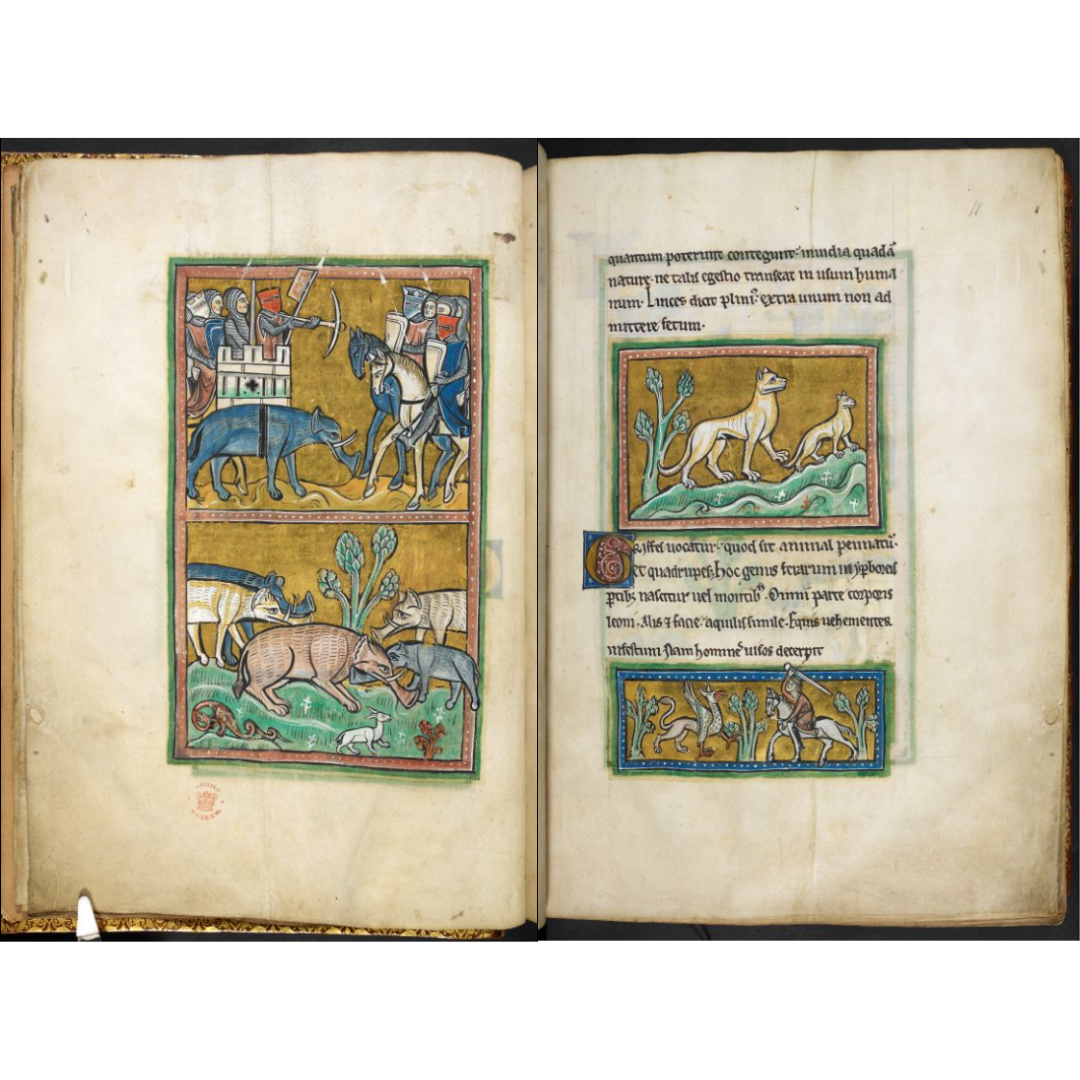 11
quantum poterint contegunt· inuidia quadā
nature· ne talis egestio transeat in usum huma
num· Linces dicit pliniꝰ extra unum non ad
mittere fetum·
Griffes uocatur· quod sit animal pennatū·
et quadrupes· hoc genus ferarum in yꝑboreis
ꝑtibꝫ nascitur uel montibꝫ· Omni parte corporis
leoni· Alis ⁊ facie aquilis simile· Equis uehementer
infestum· Nam hominē uisos decerpit